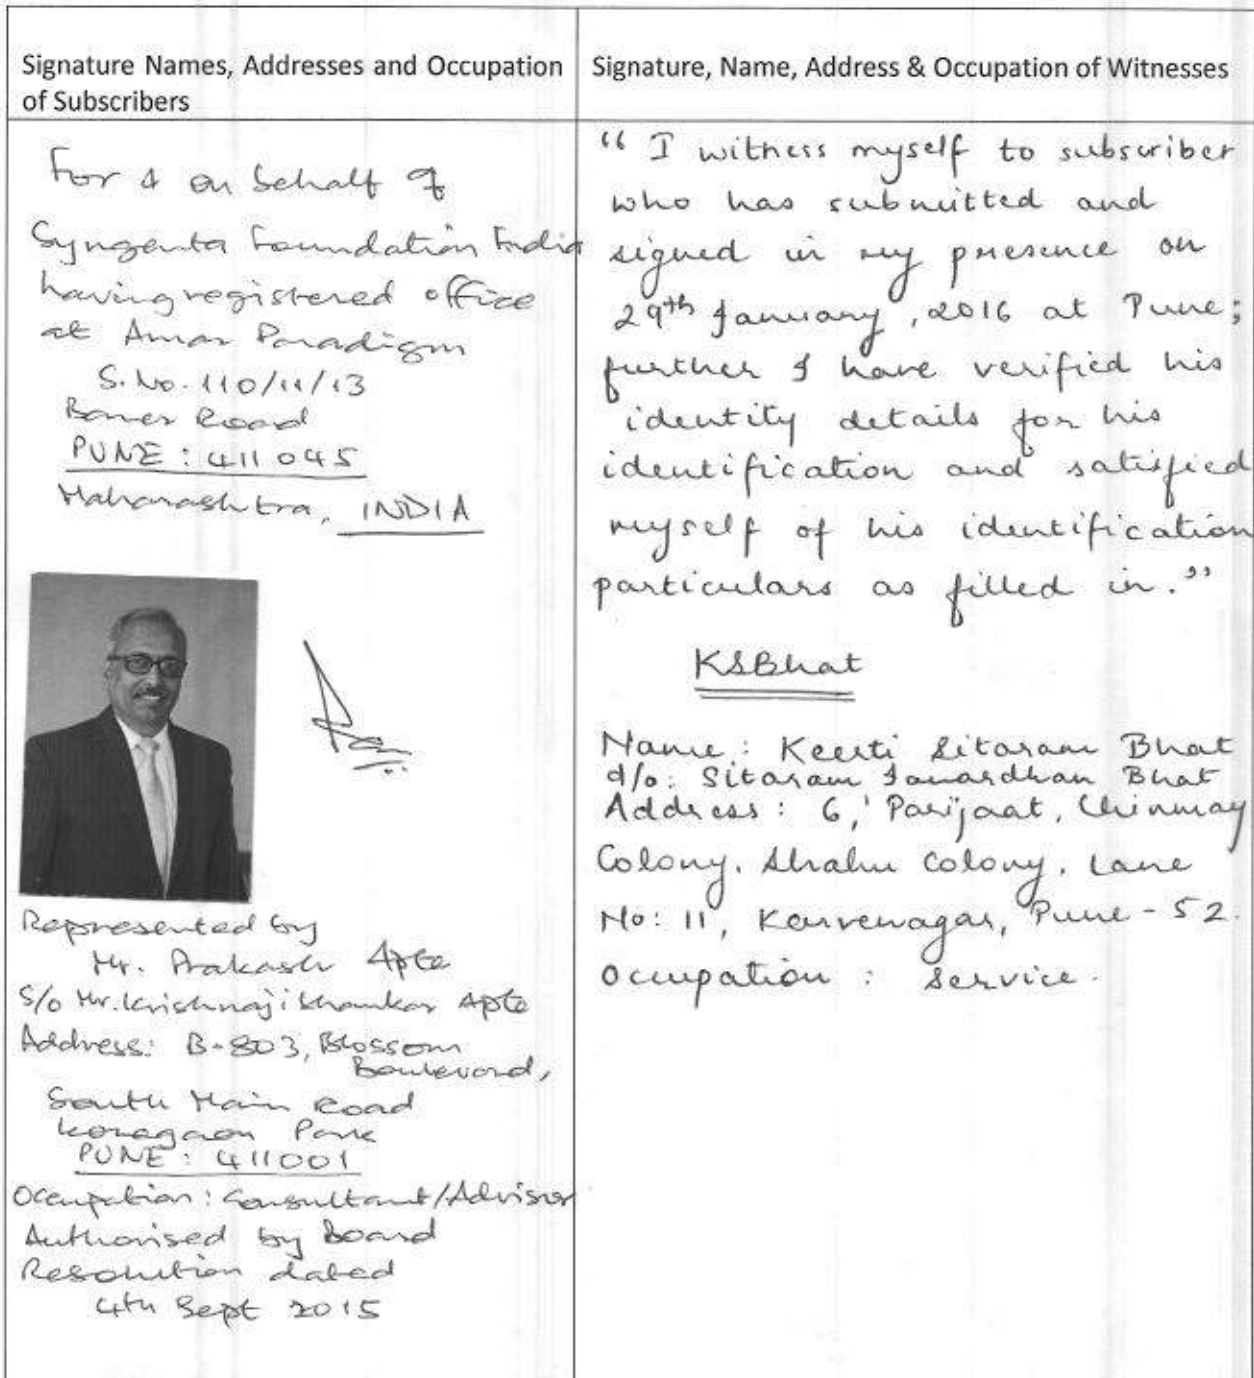 Signature Names, Addresses and Occupation
of Subscribers
For & on behalf of
Syngenta Foundation India
having registered office
at Amar Paradigm
S. No. 110/11/13
Baner Road
PUNE : 411 045
Maharashtra, INDIA
Represented by
Mr. Prakash Apte
S/o Mr. Krishnaji Shankar Apte
Address: B-803, Blossom
Boulevard,
South Main Road
Koregaon Park
PUNE : 411001
Occupation : Consultant/Advisor
Authorised by Board
Resolution dated
4th Sept 2015
Signature, Name, Address & Occupation of Witnesses
“ I witness myself to subscriber
who has submitted and
signed in my presence on
29th January, 2016 at Pune;
further I have verified his
identity details for his
identification and satisfied
myself of his identification
particulars as filled in.”
KSBhat
Name : Keerti Sitaram Bhat
d/o: Sitaram Janardhan Bhat
Address : 6, Parijaat, Chinmay
Colony, Shahu Colony, Lane
No: 11, Karvenagar, Pune - 52.
Occupation : Service.